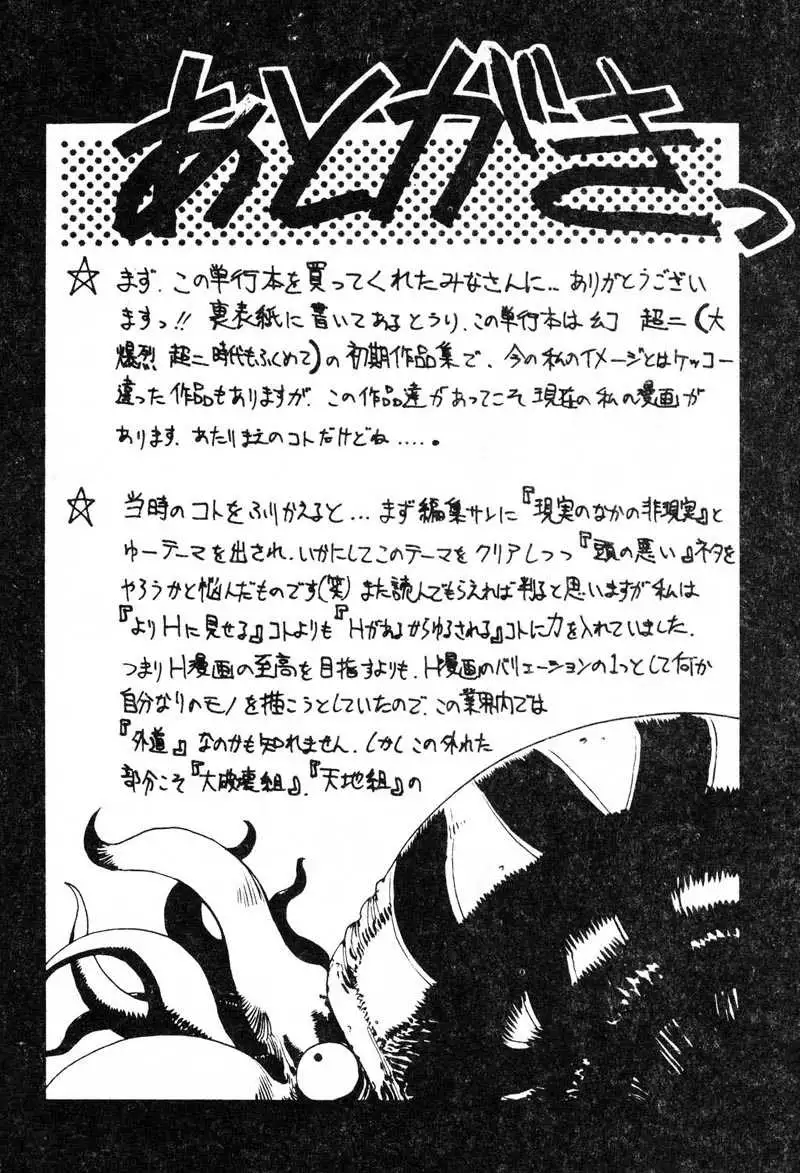 あとがきっ
☆ まず、この単行本を買ってくれたみなさんに…ありがとうござい
ますっ!! 裏表紙に書いてあるとうり、この単行本は幻 超二(大
爆烈 超二時代もふくめて)の初期作品集で、今の私のイメージとはケッコー
違った作品もありますが、この作品達があってこそ現在の私の漫画が
あります、あたりまえのコトだけどね…。
☆ 当時のコトをふりかえると…まず編集サンに『現実のなかの非現実』と
ゆーテーマを出され、いかにしてこのテーマをクリアしつつ『頭の悪い』ネタを
やろうかと悩んだものです(笑) また読んでもらえれば判ると思いますが私は
『よりHに見せる』コトよりも『Hがあるからゆるされる』コトに力を入れていました、
つまりH漫画の至高を目指すよりも、H漫画のバリエーションの1つとして何か
自分なりのモノを描こうとしていたので、この業界内では
『外道』なのかも知れません、しかしこの外れた
部分こそ『大破壊組』、『天地組』の